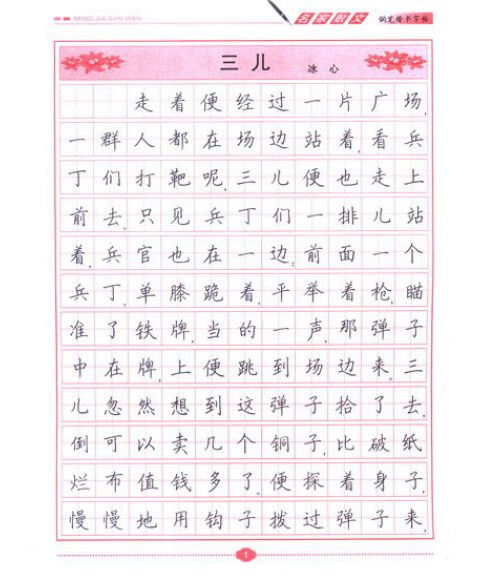 MING JIA SAN WEN
名家散文 钢笔楷书字帖
三儿 冰心
走着便经过一片广场,
一群人都在场边站着,看兵
丁们打靶呢,三儿便也走上
前去,只见兵丁们一排儿站
着,兵官也在一边;前面一个
兵丁,单膝跪着,平举着枪,瞄
准了铁牌,当的一声,那弹子
中在牌,上便跳到场边来,三
儿忽然想到这弹子拾了去,
倒可以卖几个铜子,比破纸
烂布值钱多了,便探着身子,
慢慢地用钩子拨过弹子来,
1